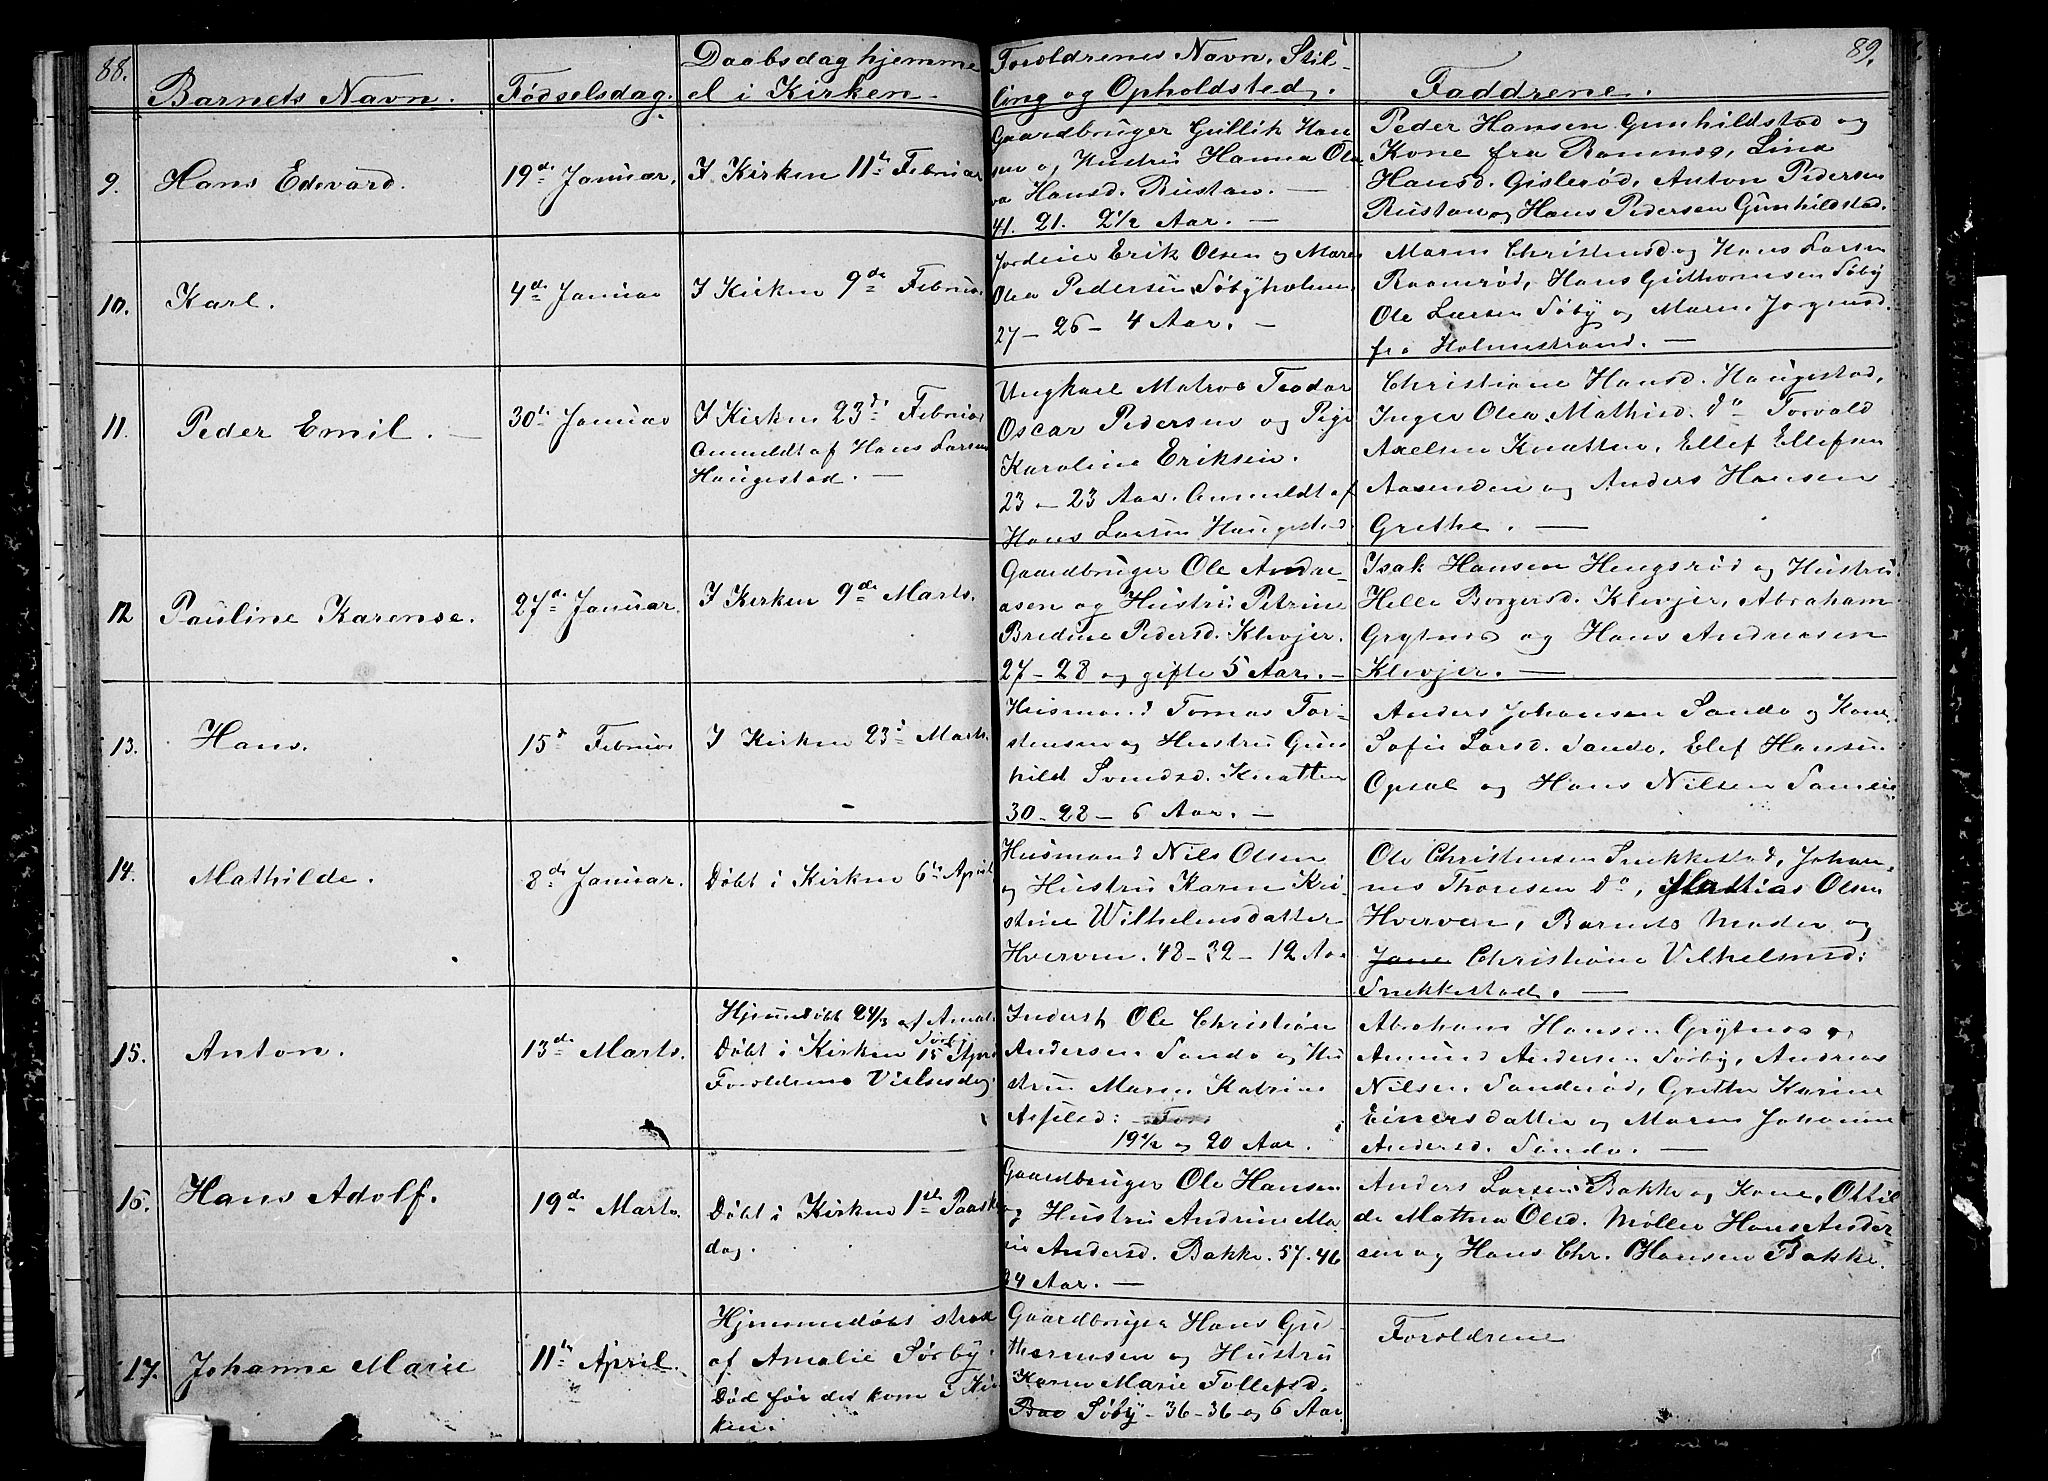 88.
Barnets Navn.
Fødselsdag.
Daabsdag hjemme
el i Kirken.
Foreldrenes Navn, Stil-
ling og Opholdsted.
Faddrene.
89.
9.
Hans Edevard.
19de Januar.
I Kirken 11te Februar
Gaardbruger Gullik Han
sen og Hustru Hanna Ole
va Hansd. Rustan. —
41. 21. 2 1/2 Aar. —
Peder Hansen Gunhildstad og
Kone fra Ramnes, Lina
Hansd. Gislerød, Anton Pedersen
Rustan og Hans Pedersen Gunhildstad.
10.
Karl.
4de Januar
I Kirken 9de Februar
Erik Olsen og Maren
Olea Pedersen Søbyholmen
27 — 26 — 4 Aar. —
Maren Christensd og Hans Larsen
Raamerød, Hans Guthormsen Søby
Ole Larsen Søby og Maren Jørgensd.
fra Holmestrand. —
11.
Peder Emil. —
30te Januar
I Kirken 23de Februar
Anmeldt af Hans Larsen
Haugestad. —
Ungkarl Matros Teodor
Oscar Pedersen og Pige
Karoline Eriksen.
23 — 23 Aar. Anmeldt af
Hans Larsen Haugestad.
Christiane Hansd. Haugestad,
Inger Olea Mathisd. do Torvald
Axelsen Knatten, Ellef Ellefsen
Aasenden og Anders Hansen
Grethe. —
12
Pauline Karense.
27de Januar.
I Kirken 9de Marts.
Gaardbruger Ole Andre-
asen og Hustru Petrine
Bredine Pedersd. Klevjer.
27 — 28 og gifte 5 Aar. —
Isak Hansen Hengsrød og Hustru
Helle Borgersd. Klevjer, Abraham
Grytnes og Hans Andreasen
Klevjer. —
13.
Hans.
15d Februar
I Kirken 23d Marts.
Husmand Tomas Tor-
stensen og Hustru Gun
hild Svendsd. Knatten
30 — 28 — 6 Aar. —
Anders Johansen Sando og Kone
Sofie Larsd. Sando, Elef Hansen
Opsal og Hans Nilsen
14.
Mathilde.
8de Januar.
Døbt i Kirken 6te April
Husmand Nils Olsen
og Hustru Karen Kri-
stine Wilhelmsdatter
Hverven. 48 — 32 — 12 Aar
Ole Christensen Snekkestad, Johan-
nes Thonsen do, Mathias Olsen
Hverven, Barnets Moder og
Jane Christiane Vilhelmsd:
Snekkestad. —
15.
Anton.
13de Marts.
Hjemmedøbt 24/3 af Amalie
Sørby
Døbt i Kirken 15 April
Foreldrenes Vielsesdag.
Inderst Ole Christian
Andersen Sando og Hu
stru Maren Katrine
19 1/2 og 20 Aar.
Abraham Hansen Grytnes og
Amund Andersen Sørby, Andreas
Nilsen Sanderød, Grethe Karine
Einersdatter og Maren Johanne
Andersd. Sando. —
16.
Hans Adolf.
19de Marts.
Døbt i Kirken 1ste Paaske
dag.
Gaardbruger Ole Hansen
og Hustru Andrine Ma-
rie Andersd. Bakke. 57. 46
24 Aar. —
Anders Larsen Bakke og Kone, Ottil
de Mathea Olsd. Møller Hans Ander-
sen og Hans Chr. Hansen Bakke.
17.
Johanne Marie
11te April.
Hjemmedøbt strax
af Amalie Sørby.
Død før det kom i Kir
ken.
Gaardbruger Hans Gu-
thormsen og Hustru
Karen Marie Tollefsd.
Søby — 36 — 36 og 6 Aar.
Foreldrene